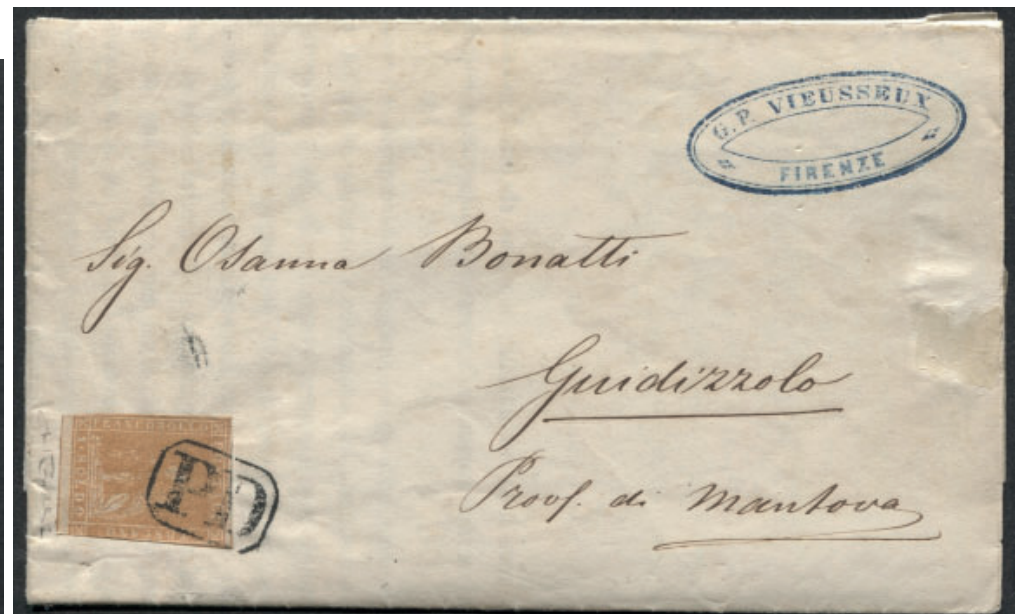 G. P. VIEUSSEUX
FIRENZE
Sig. Osanna Bonatti
Guidizzolo
Prov. di Mantova
FRANCOBOLLO
PD